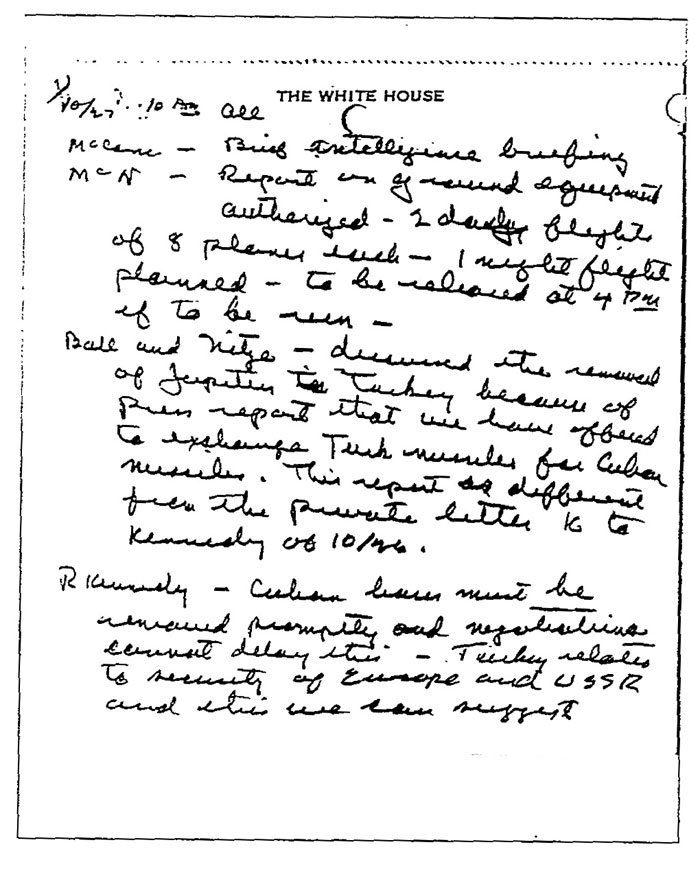 THE WHITE HOUSE
10/27 10 AM all
McCone — Brief intelligence briefing
McN — Report on ground equipment
authorized — 2 daily flights
of 8 planes each — 1 night flight
planned — to be released at 4 PM
if to be run —
Ball and Nitze — discussed the removal
of Jupiters in Turkey because of
press report that we have offered
to exchange Turk missiles for Cuban
missiles. This report is different
from the private letter K to
Kennedy of 10/26.
R Kennedy — Cuban bases must be
removed promptly and negotiations
cannot delay this — Turkey relates
to security of Europe and USSR
and this we can suggest